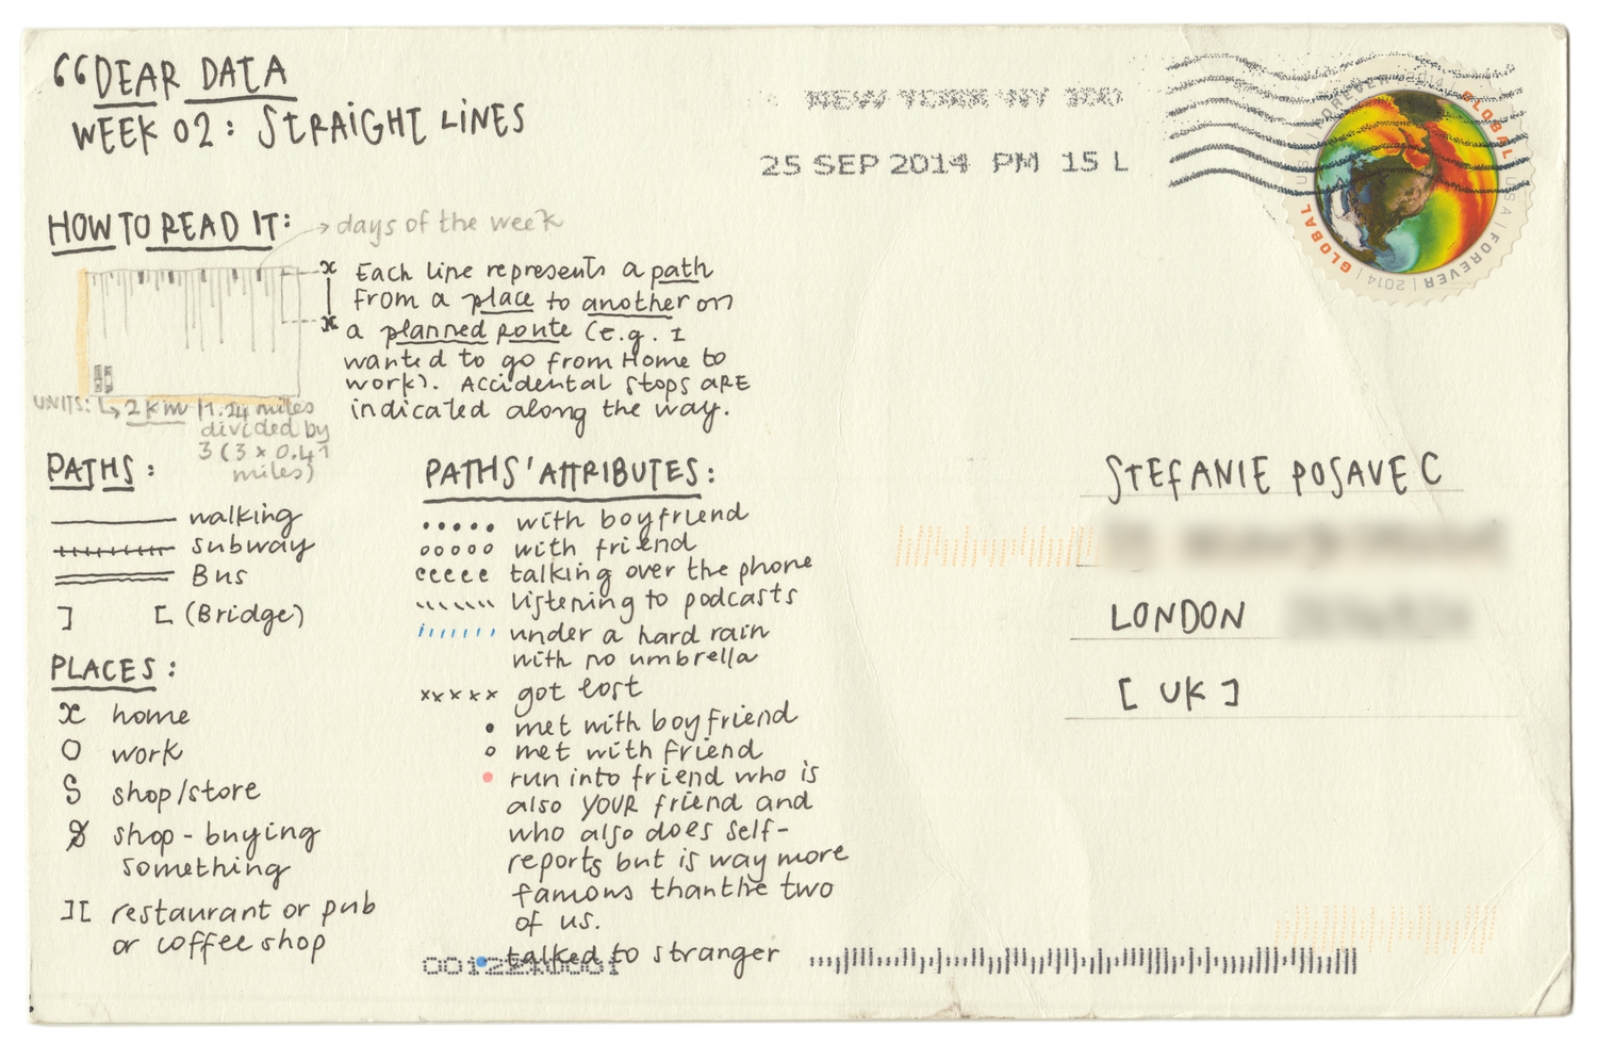 “DEAR DATA
WEEK 02: STRAIGHT LINES
NEW YORK NY 100
25 SEP 2014 PM 15 L
GLOBAL USA | FOREVER | 2014 |
GLOBAL USA | FOREVER | 2014 |
HOW TO READ IT:
days of the week
x Each line represents a path
from a place to another on
x a planned route (e.g. I
wanted to go from Home to
work). Accidental stops ARE
indicated along the way.
UNITS: 2 km | 1.24 miles
divided by
3 (3 x 0.41
miles)
PATHS:
walking
subway
Bus
] [ (Bridge)
PLACES:
x home
O work
S shop/store
shop - buying
something
][ restaurant or pub
or coffee shop
PATHS' ATTRIBUTES:
with boyfriend
with friend
talking over the phone
listening to podcasts
under a hard rain
with no umbrella
xxxxx got lost
met with boyfriend
met with friend
run into friend who is
also YOUR friend and
who also does self-
reports but is way more
famous than the two
of us.
talked to stranger
STEFANIE POSAVEC
LONDON
[UK]